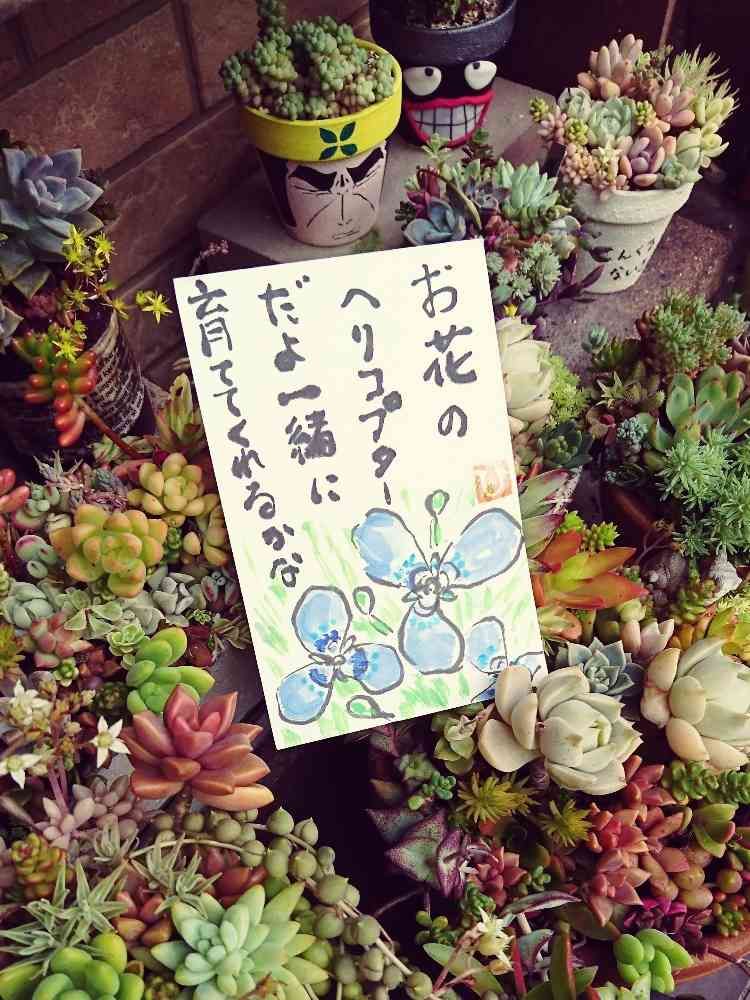 お花の
ヘリコプター
だよ一緒に
育ててくれるかな